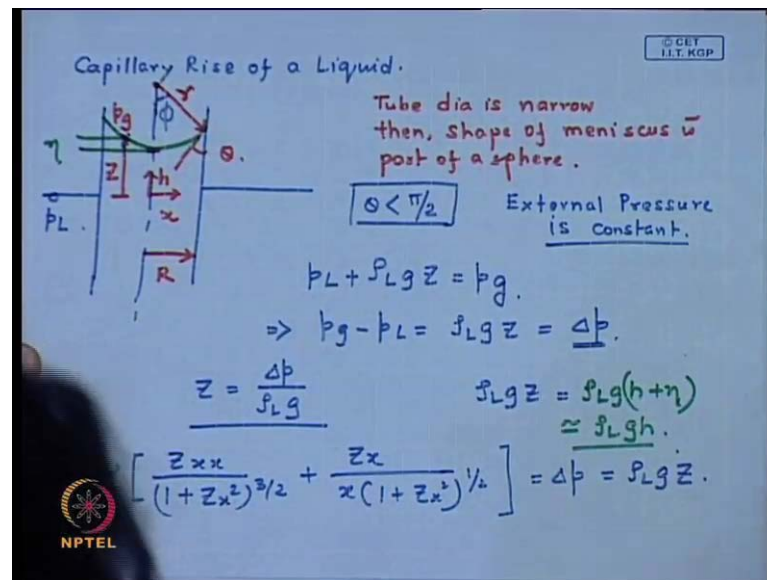 © CET
I.I.T. KGP
Capillary Rise of a Liquid.
Tube dia is narrow
then, shape of meniscus is
part of a sphere.
pg
φ
r
η
θ.
Z
h
x
pL.
R
θ < π/2
External Pressure
is constant.
pL + ρL g Z = pg.
=> pg - pL = ρL g Z = Δp.
Z = Δp / ρL g
ρL g Z = ρL g (h + η)
≃ ρL g h.
[ Zxx / (1 + Zx²)^3/2 + Zx / x(1 + Zx²)^1/2 ] = Δp = ρL g Z.
NPTEL